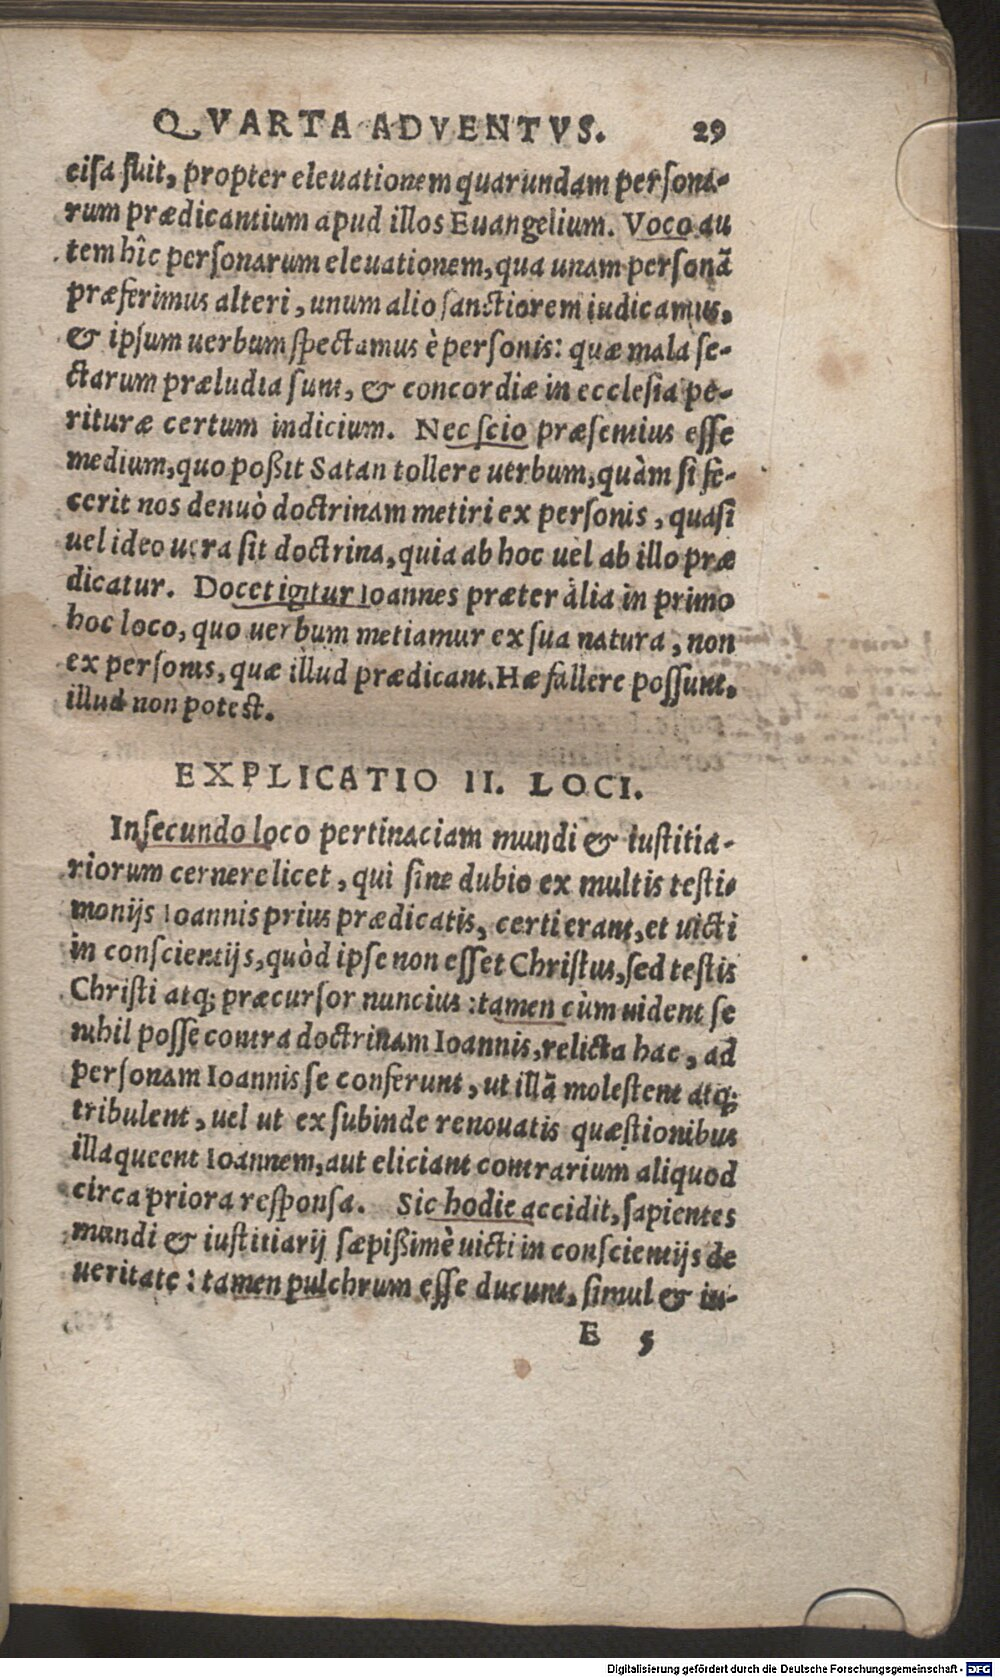 QVARTA ADVENTVS. 29
cisa fuit, propter eleuationem quarundam persona-
rum prædicantium apud illos Euangelium. Voco au
tem hîc personarum eleuationem, qua unam personã
præferimus alteri, unum alio sanctiorem iudicamus,
& ipsum uerbum spectamus è personis: quæ mala se-
ctarum præludia sunt, & concordiæ in ecclesia pe-
rituræ certum indicium. Nec scio præsentius esse
medium, quo poßit Satan tollere uerbum, quàm si fe-
cerit nos denuò doctrinam metiri ex personis, quasi
uel ideo uera sit doctrina, quia ab hoc uel ab illo præ
dicatur. Docet igitur Ioannes præter alia in primo
hoc loco, quo uerbum metiamur ex sua natura, non
ex personis, quæ illud prædicant. Hæ fallere possunt,
illud non potest.
EXPLICATIO II. LOCI.
In secundo loco pertinaciam mundi & iustitia-
riorum cernere licet, qui sine dubio ex multis testi-
monijs Ioannis prius prædicatis, certi erant, et uicti
in conscientijs, quòd ipse non esset Christus, sed testis
Christi atq; præcursor nuncius: tamen cùm uident se
nihil posse contra doctrinam Ioannis, relicta hac, ad
personam Ioannis se conferunt, ut illã molestent atq;
tribulent, uel ut ex subinde renouatis quæstionibus
illaqueent Ioannem, aut eliciant contrarium aliquod
circa priora responsa. Sic hodie accidit, sapientes
mundi & iustitiarij sæpißimè uicti in conscientijs de
ueritate: tamen pulchrum esse ducunt, simul & in-
E 5
Digitalisierung gefördert durch die Deutsche Forschungsgemeinschaft - DFG